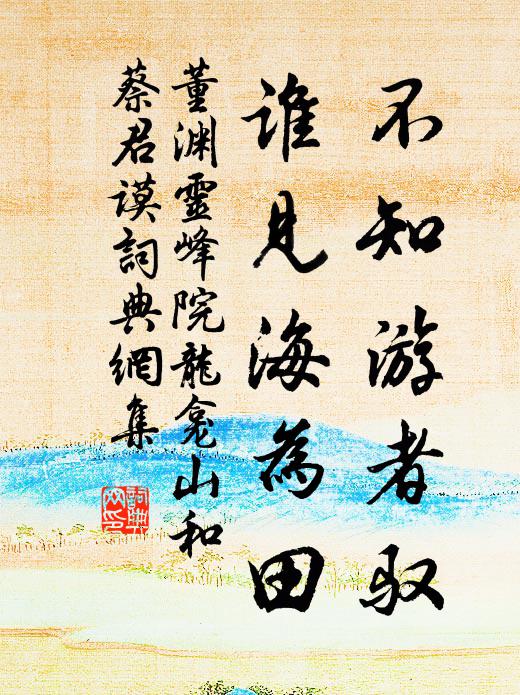 不知游者驭
谁见海为田
董渊灵峰院龙龛山和
蔡君谟词典网集
词典网印